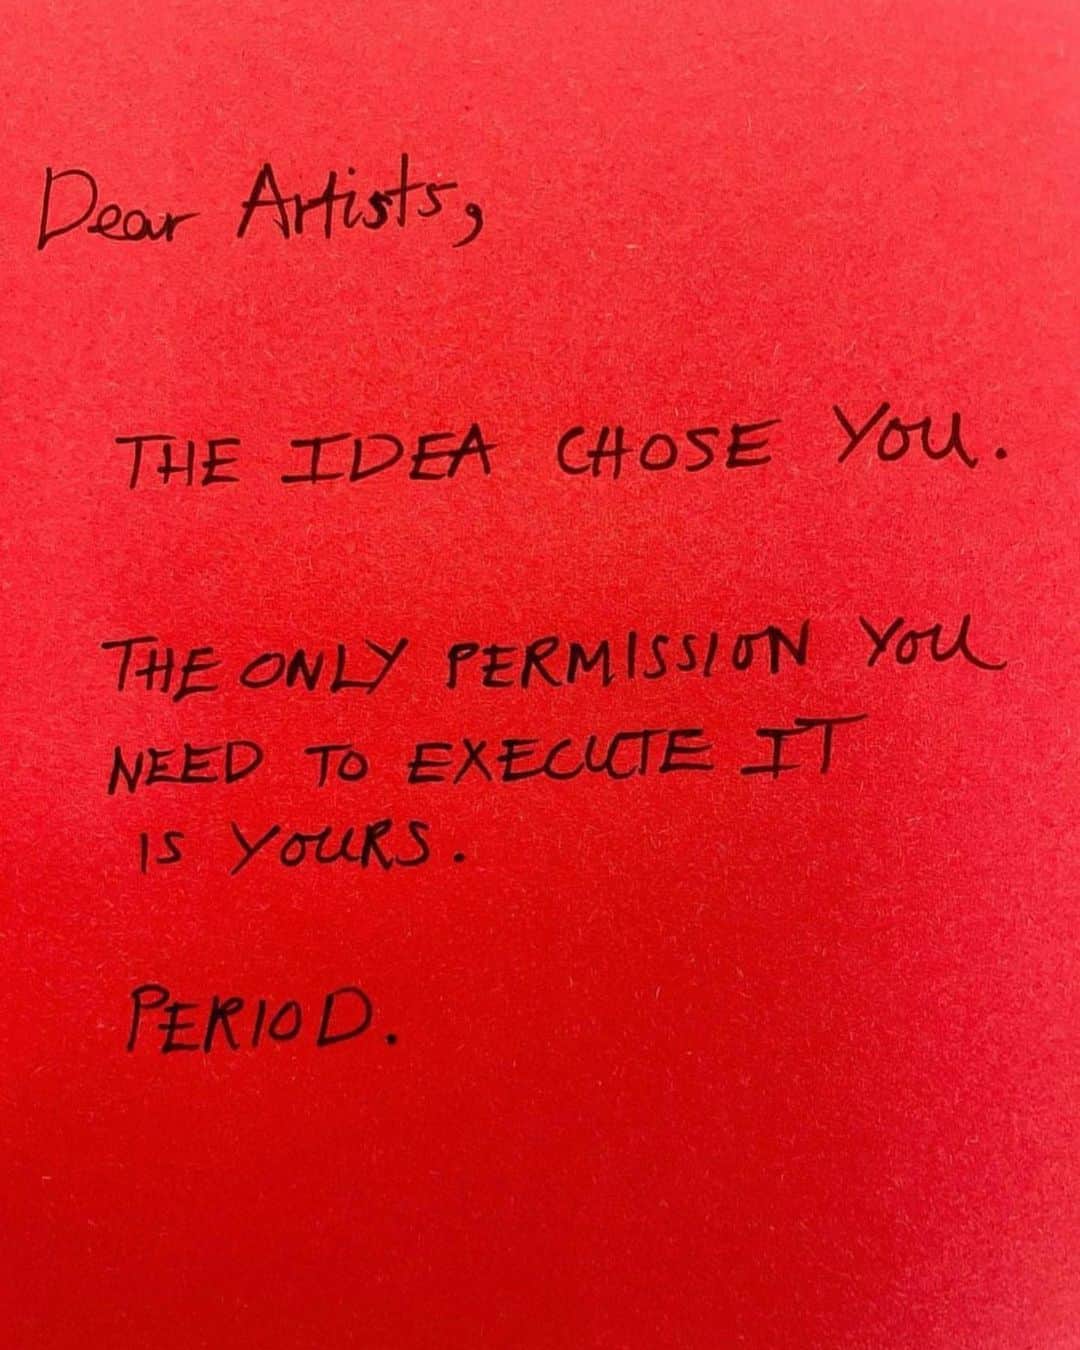 Dear Artists,
THE IDEA CHOSE YOU.
THE ONLY PERMISSION YOU
NEED TO EXECUTE IT
IS YOURS.
PERIOD.